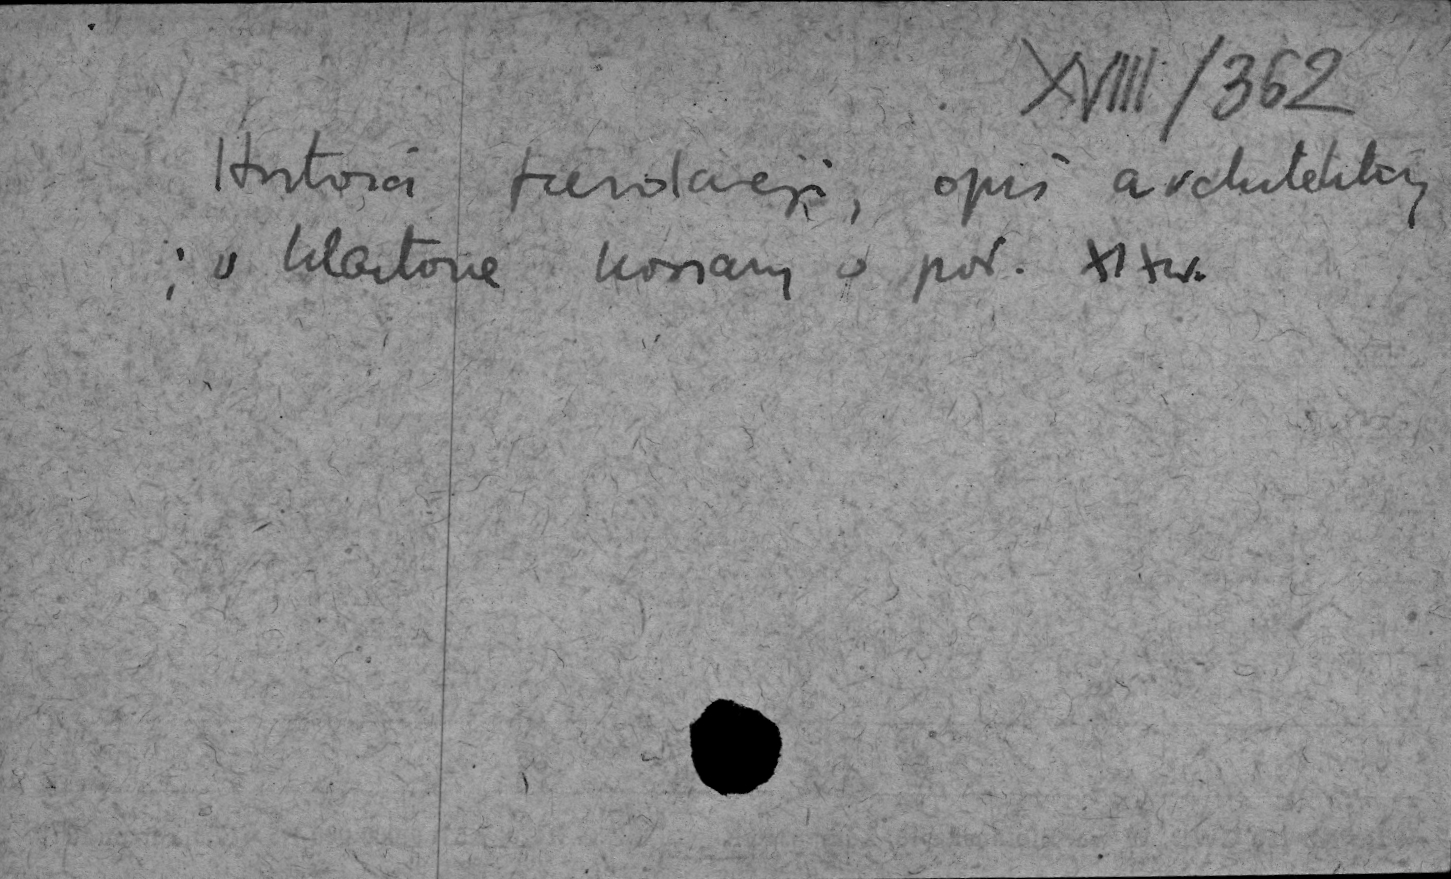 XVIII/362
Historia fundacji, opis architektury
; w klasztorze koszary w poł. XIX w.